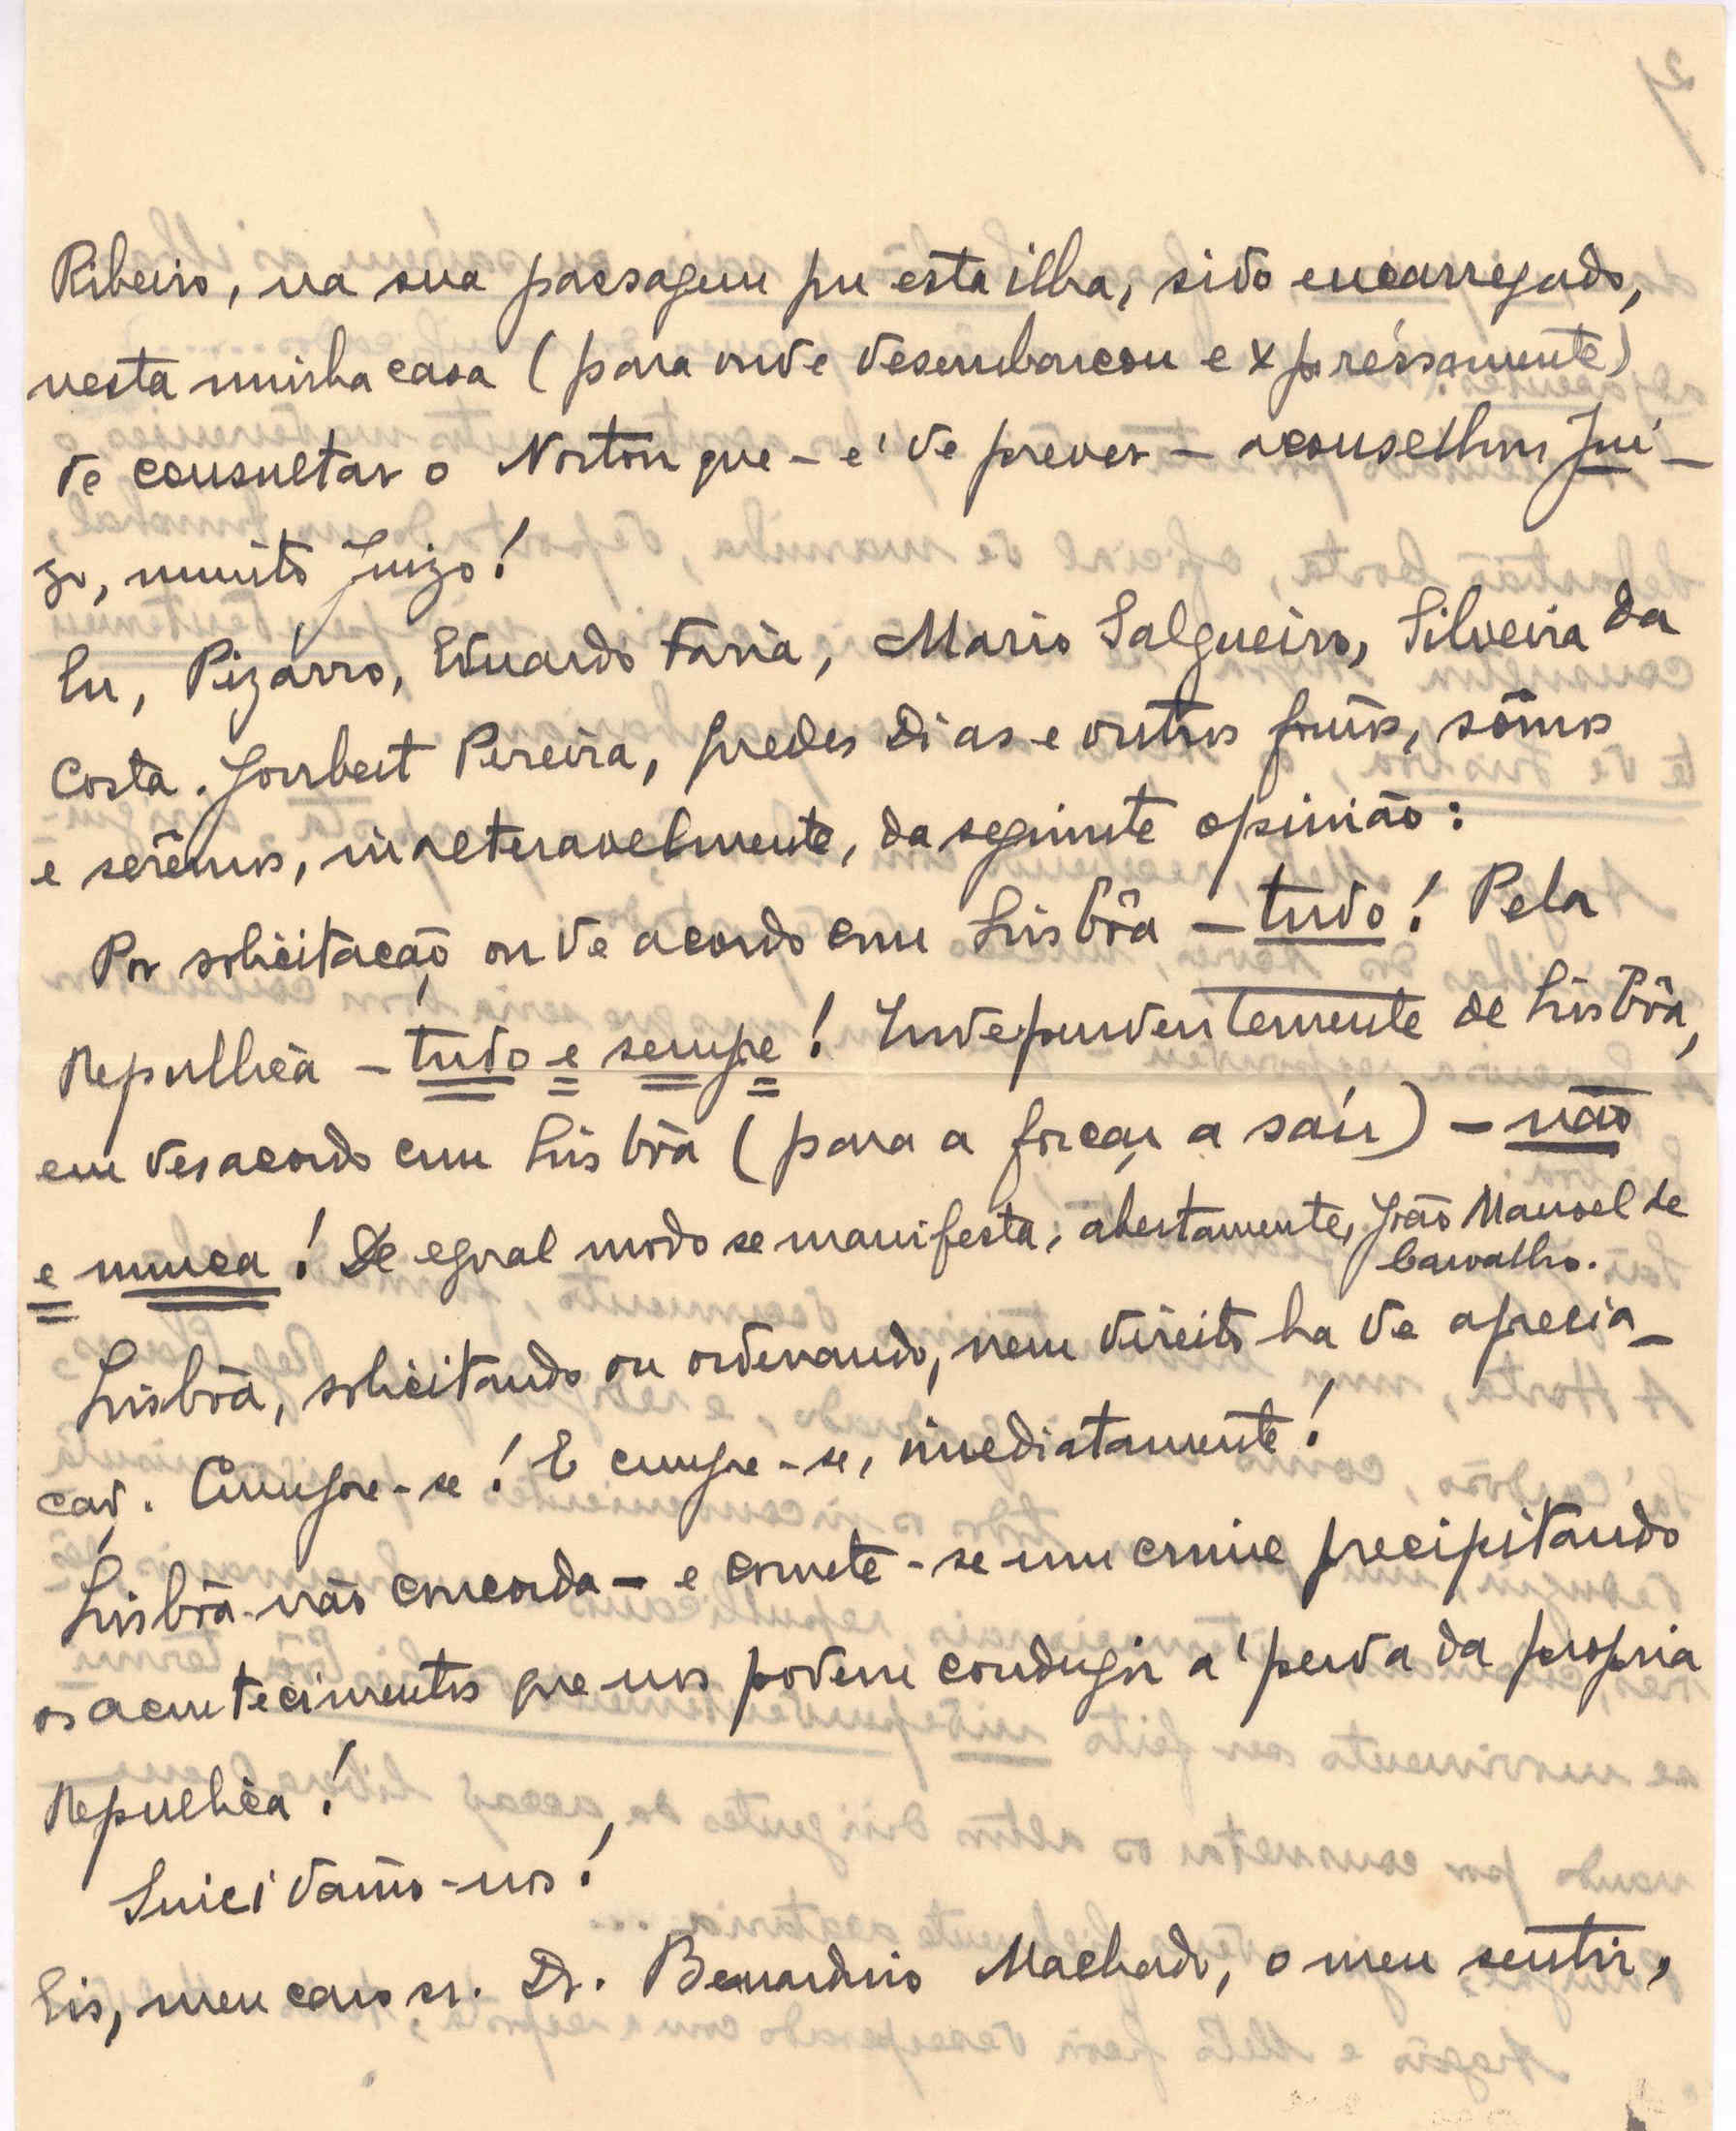 Ribeiro, na sua passagem por esta ilha, sido encarregado,
nesta minha casa (para onde desembarcou expréssamente)
de consultar o Norton que - e' de prever - aconselhou Jui-
zo, muito Juizo!
Eu, Pizarro, Eduardo Faria, Mario Salgueiro, Silveira da
Costa. Joubert Pereira, Guedes Dias e outros fomos, sômos
e serêmos, inalteravelmente, da seguinte opinião:
Por solicitação ou de acordo com Lisbôa - tudo! Pela
Republica - tudo e sempre! Independentemente de Lisbôa,
em desacordo com Lisbôa (para a forçar a sair) - não
e nunca! De egual modo se manifesta, abertamente, João Manoel de
Carvalho.
Lisbôa, solicitando ou ordenando, nem direito ha de aprecia-
çaõ. Cumpre-se! E cumpre-se, imediatamente!
Lisbôa não concorda - e comete-se um crime precipitando
os acontecimentos que nos podem conduzir a' perda da propria
Republica!
Suicidamo-nos!
Eis, meu caro sr. Dr. Bernardino Machado, o meu sentir,